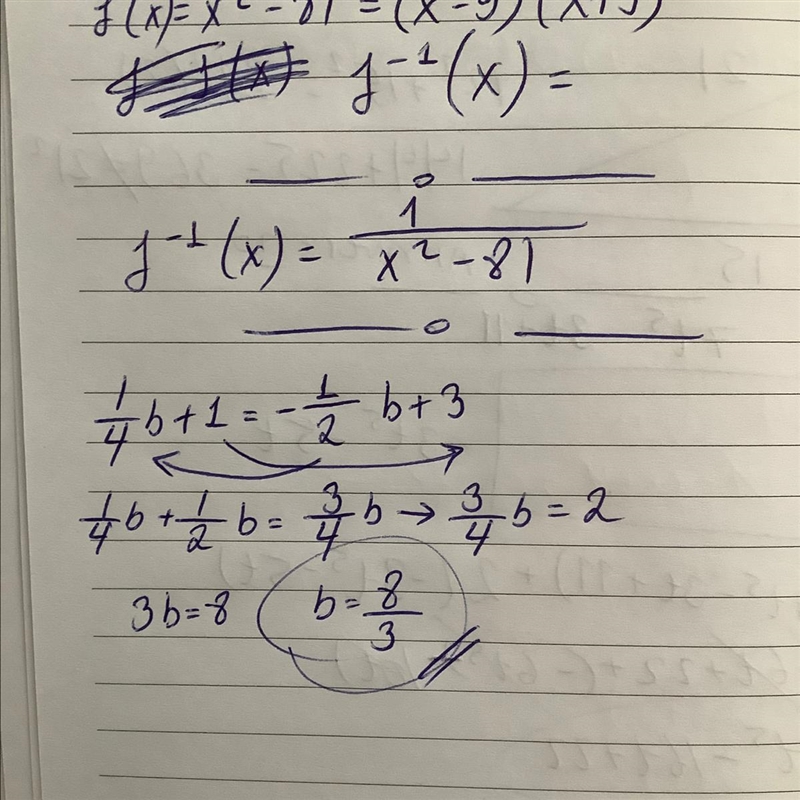 f(x) = x² - 81 = (x-9)(x+9)
f⁻¹(x) =
f⁻¹(x) = 1/(x² - 81)
1/4 b + 1 = - 1/2 b + 3
1/4 b + 1/2 b = 3/4 b → 3/4 b = 2
3b = 8 b = 8/3